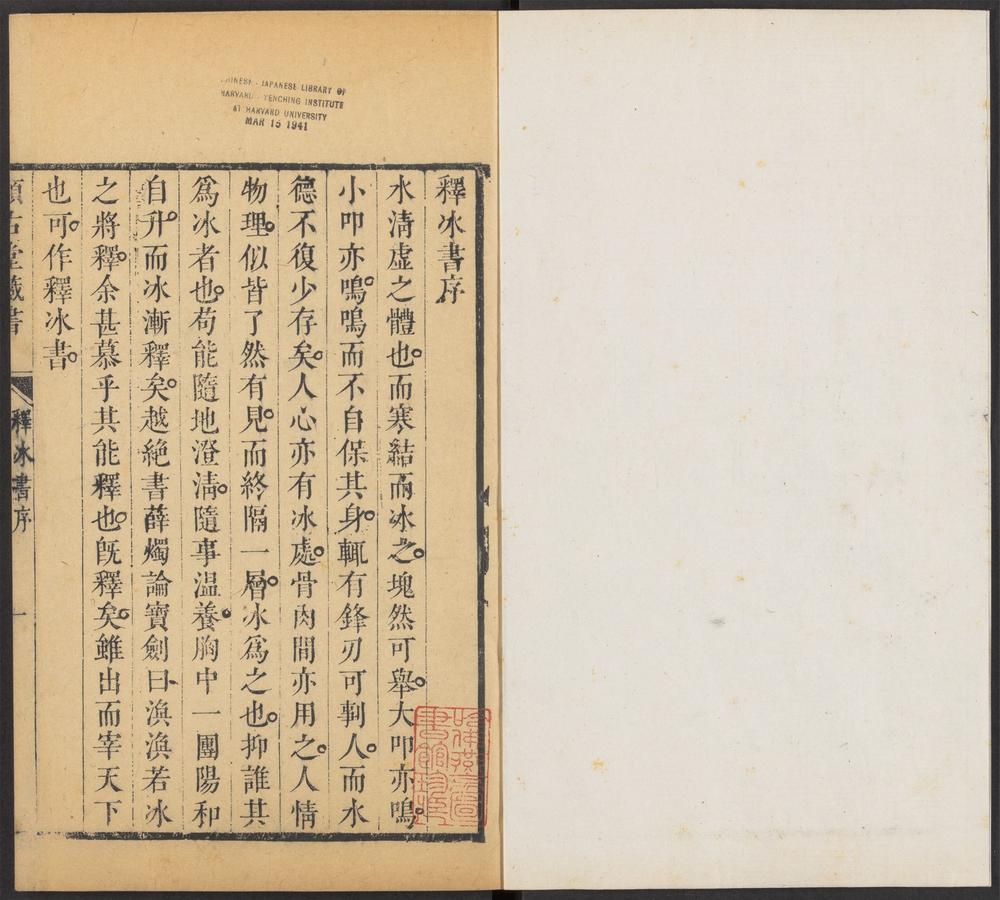 CHINESE - JAPANESE LIBRARY OF
HARVARD - YENCHING INSTITUTE
AT HARVARD UNIVERSITY
MAR 15 1941
釋冰書序
水淸虛之體也。而寒結而冰之。塊然可舉。大叩亦鳴。
小叩亦鳴。鳴而不自保其身。輒有鋒刃可剚人。而水
德不復少存矣。人心亦有冰處。骨肉間亦用之。人情
物理。似皆了然有見。而終隔一層。冰爲之也。抑誰其
爲冰者也。苟能隨地澄淸。隨事溫養。胸中一團陽和
自升。而冰漸釋矣。越絕書薛燭論寶劍曰渙渙若冰
之將釋。余甚慕乎其能釋也。旣釋矣。雖出而宰天下
也可。作釋冰書。
賴古堂藏書
釋冰書序
一